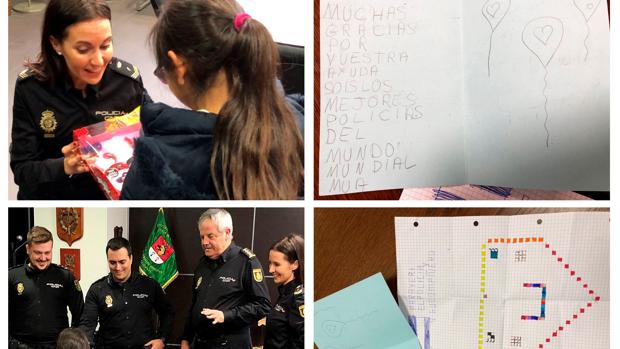 POLICÍA
MUCHAS
GRACIAS
POR
VUESTRA
AYUDA
SOIS LOS
MEJORES
POLICIAS
DEL
MUNDO
MUNDIAL
MUA